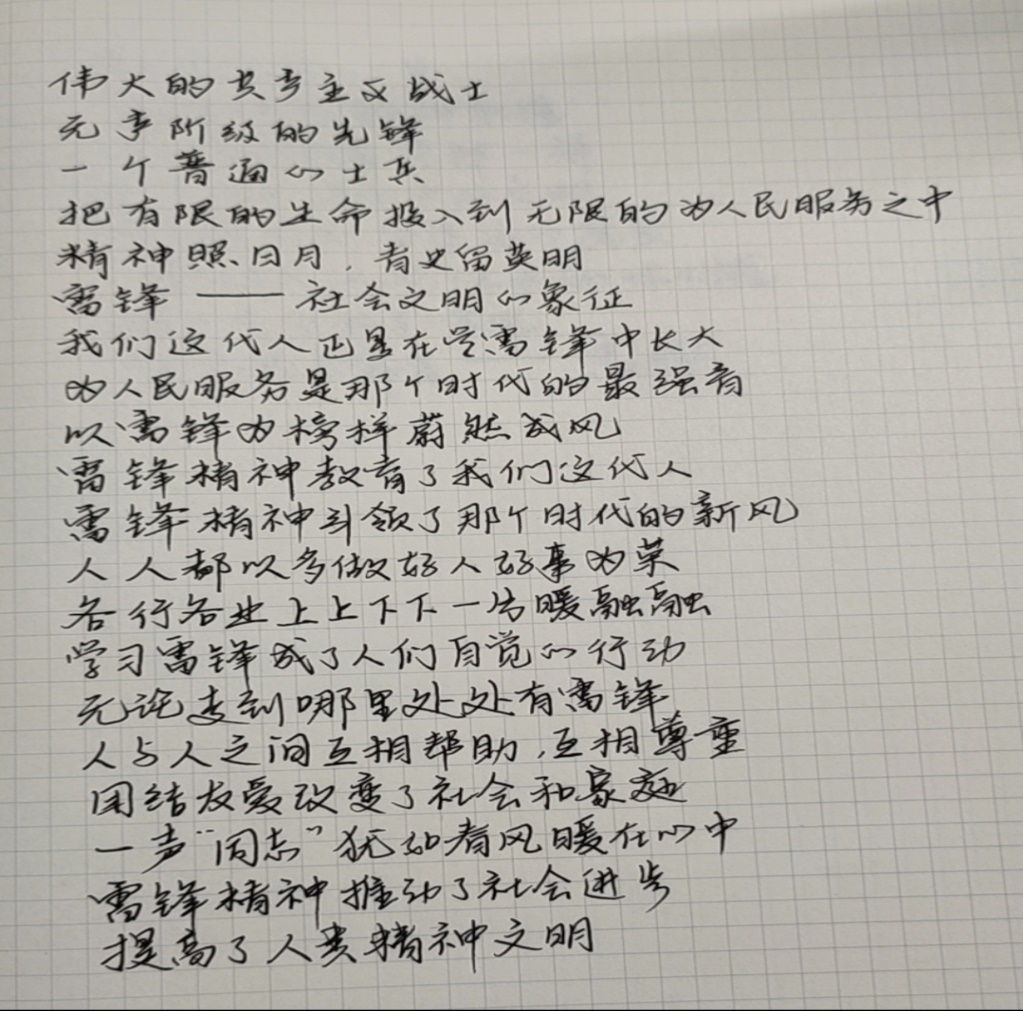 伟大的共产主义战士
无产阶级的先锋
一个普通的士兵
把有限的生命投入到无限的为人民服务之中
精神照日月，青史留英明
雷锋——社会文明的象征
我们这代人正是在学雷锋中长大
为人民服务是那个时代的最强音
以雷锋为榜样蔚然成风
雷锋精神教育了我们这代人
雷锋精神引领了那个时代的新风
人人都以多做好人好事为荣
各行各业上上下下一片暖融融
学习雷锋成了人们自觉的行动
无论走到哪里处处有雷锋
人与人之间互相帮助，互相尊重
团结友爱改变了社会和家庭
一声“同志”犹如春风暖在心中
雷锋精神推动了社会进步
提高了人类精神文明